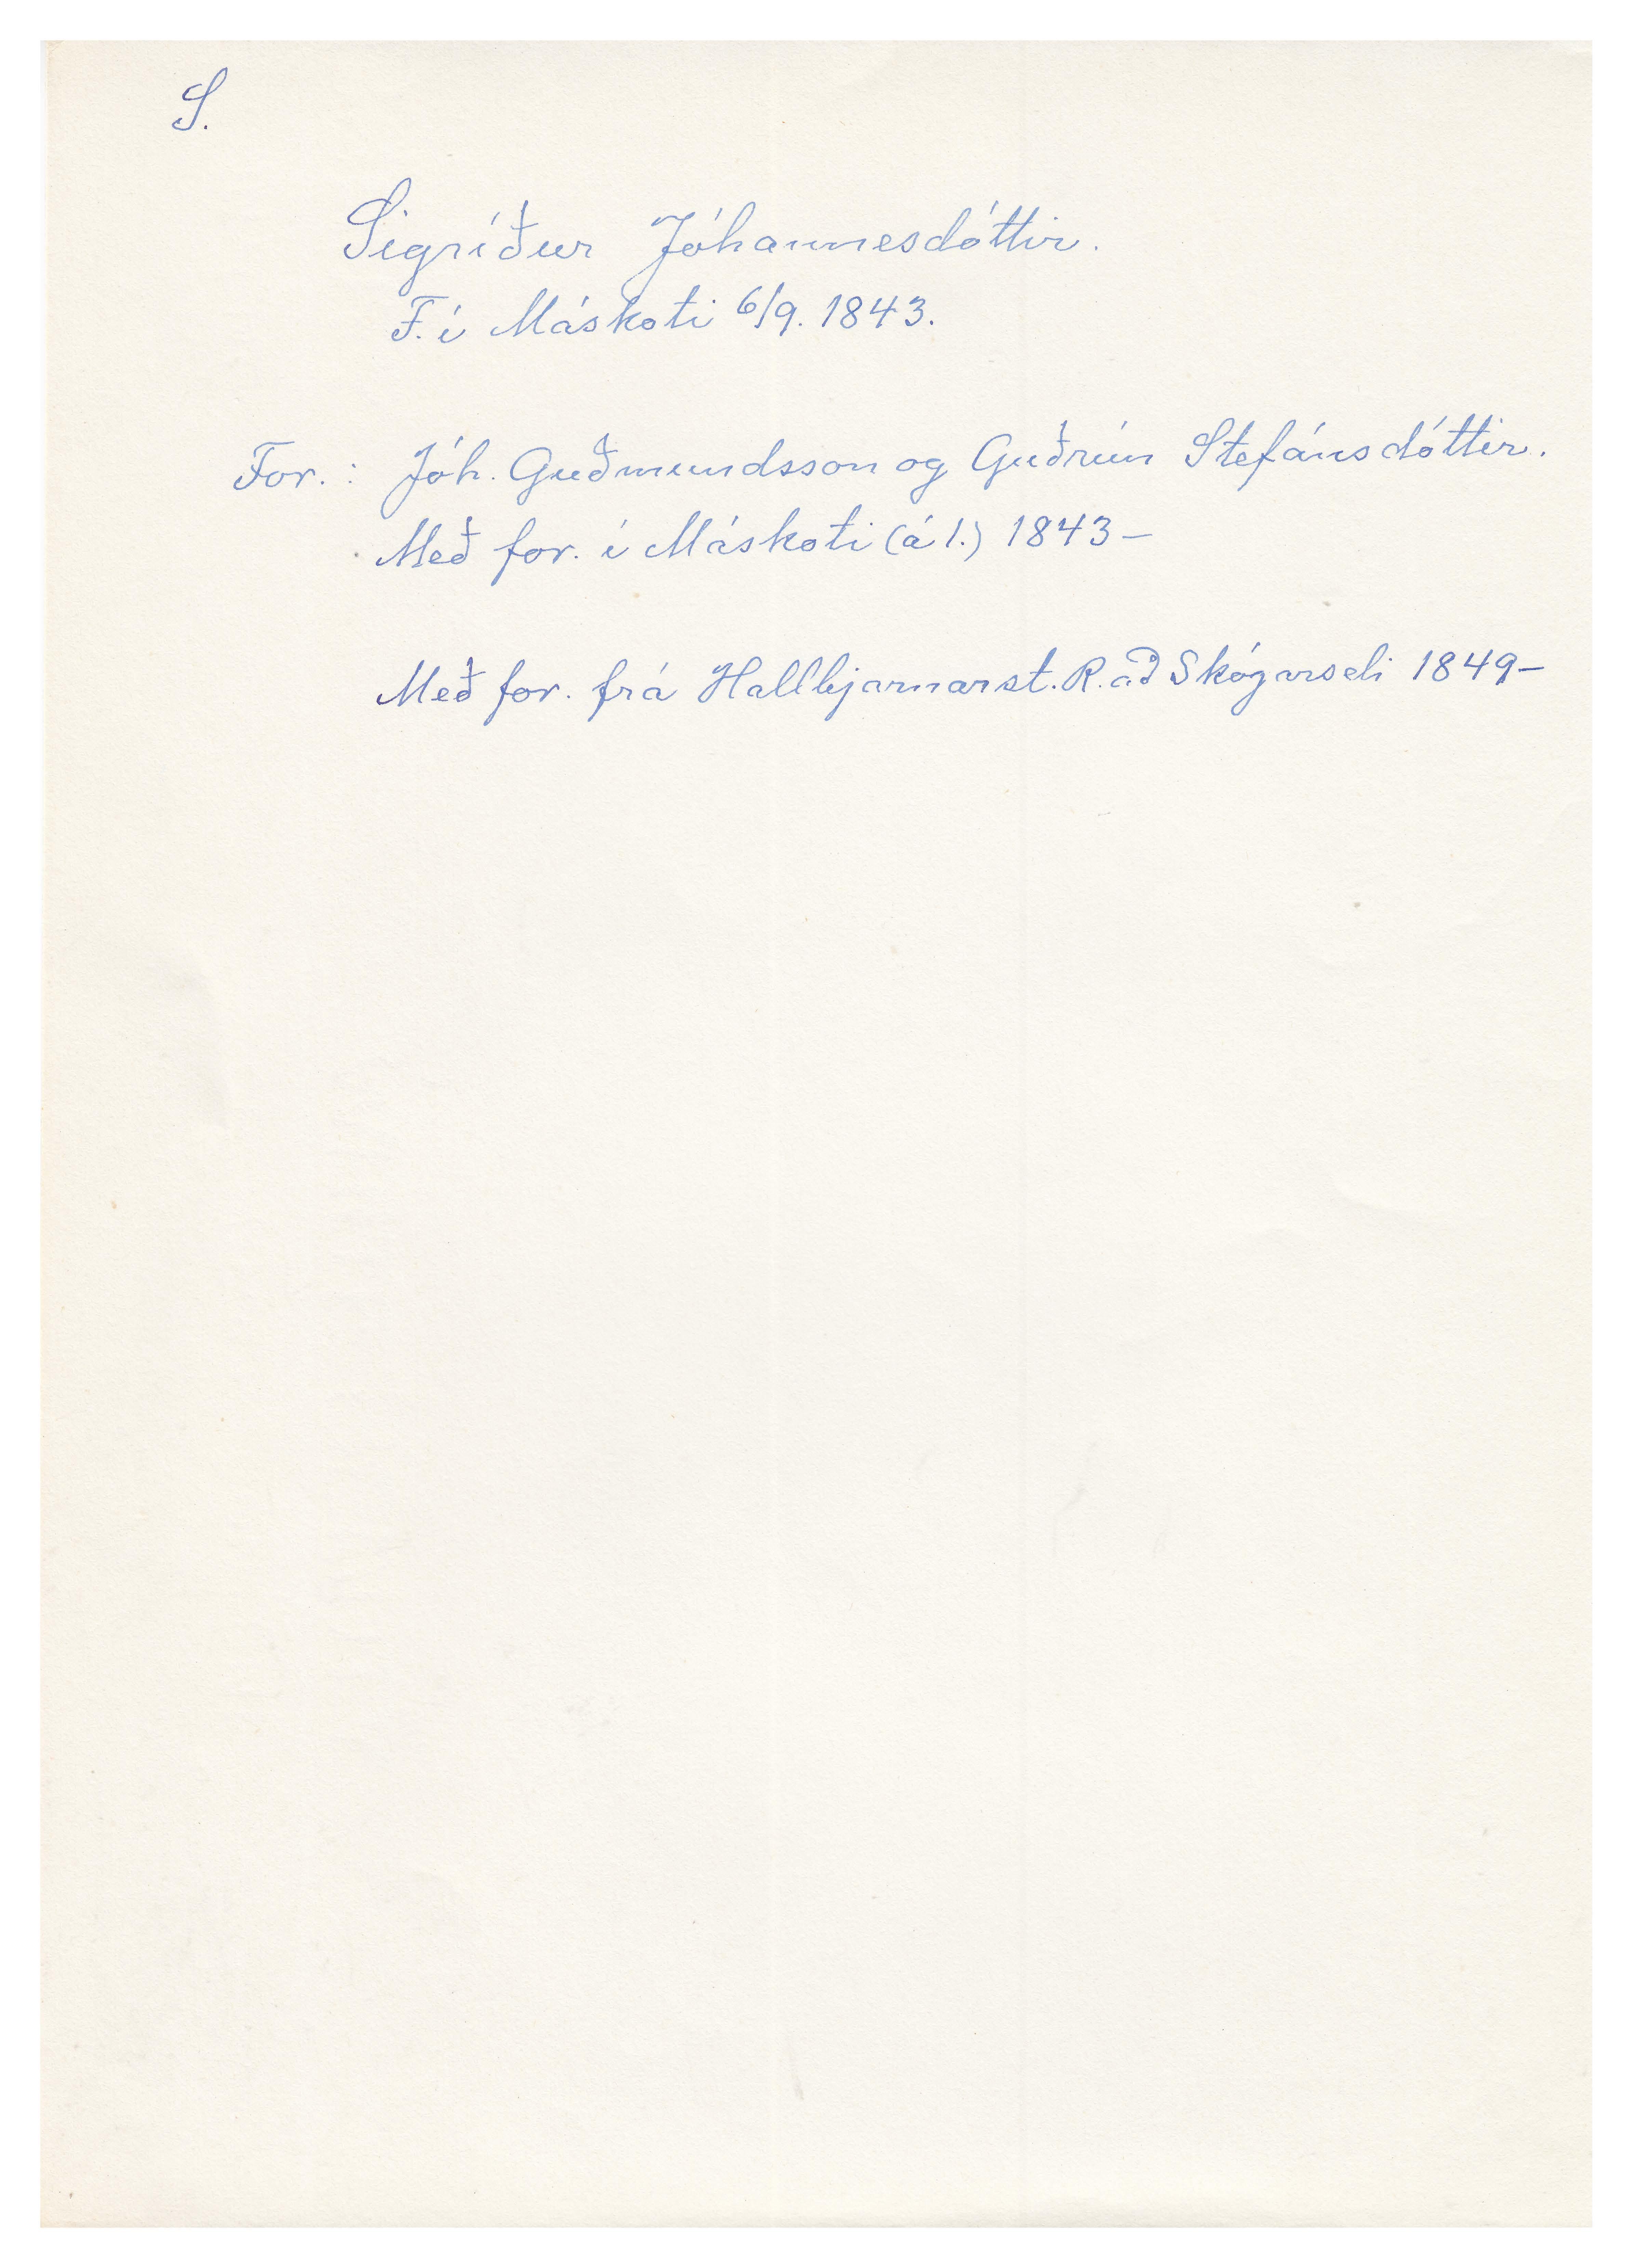 S.
Sigríður Jóhannesdóttir.
F. í Máskoti 6/9. 1843.
For. : Jóh. Guðmundsson og Guðrún Stefánsdóttir.
Með for. í Máskoti (á 1.) 1843–
Með for. frá Hallbjarnarst. R. að Skógarseli 1849–